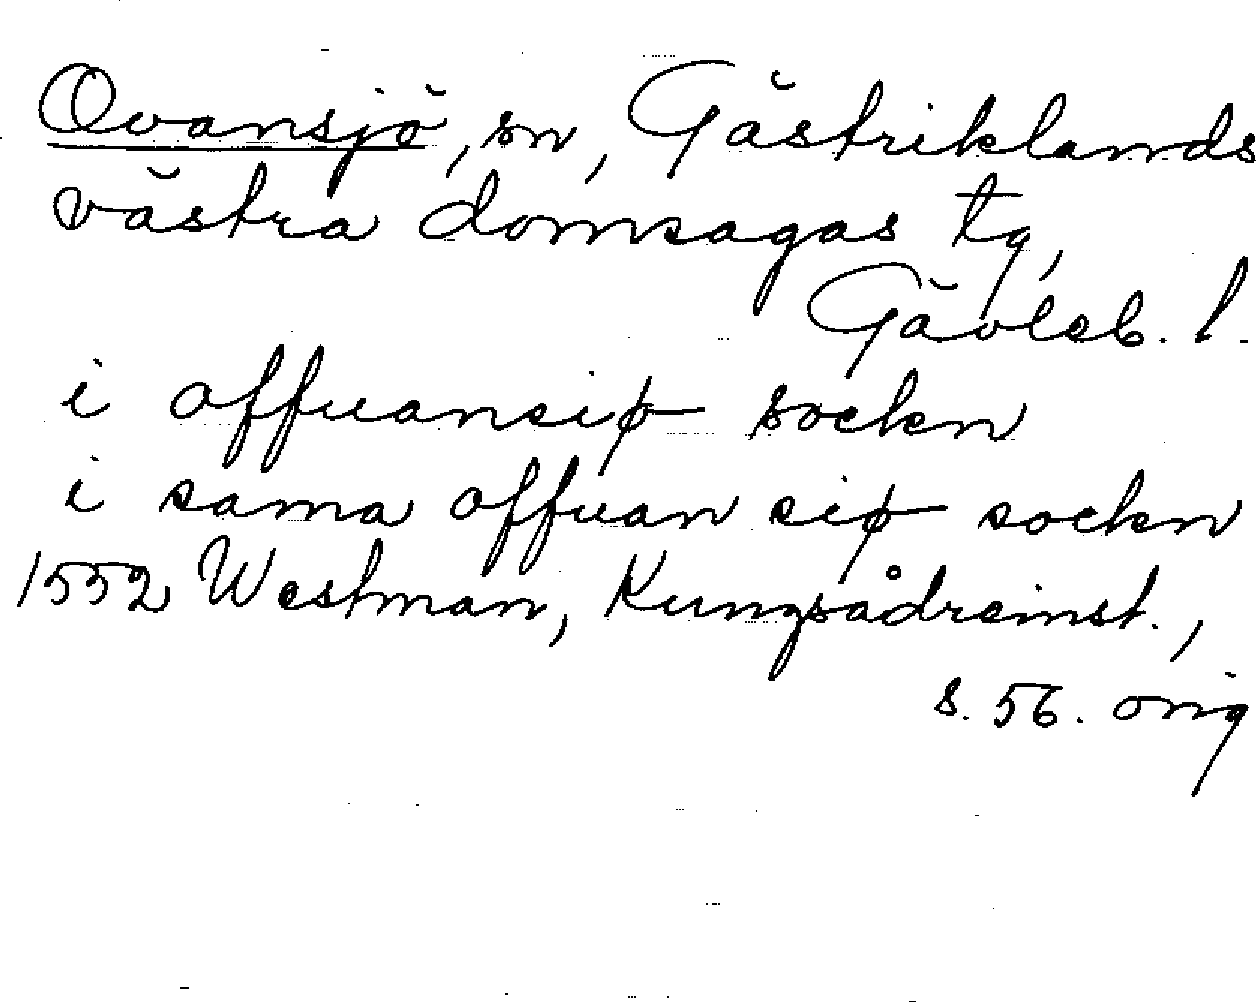 Ovansjö, sn, Gästriklands
västra domsagas tg,
Gävleb. l.
i offuansiø sockn
i sama offuan siø sockn
1552 Westman, Kungsådreinst.,
s. 56. orig